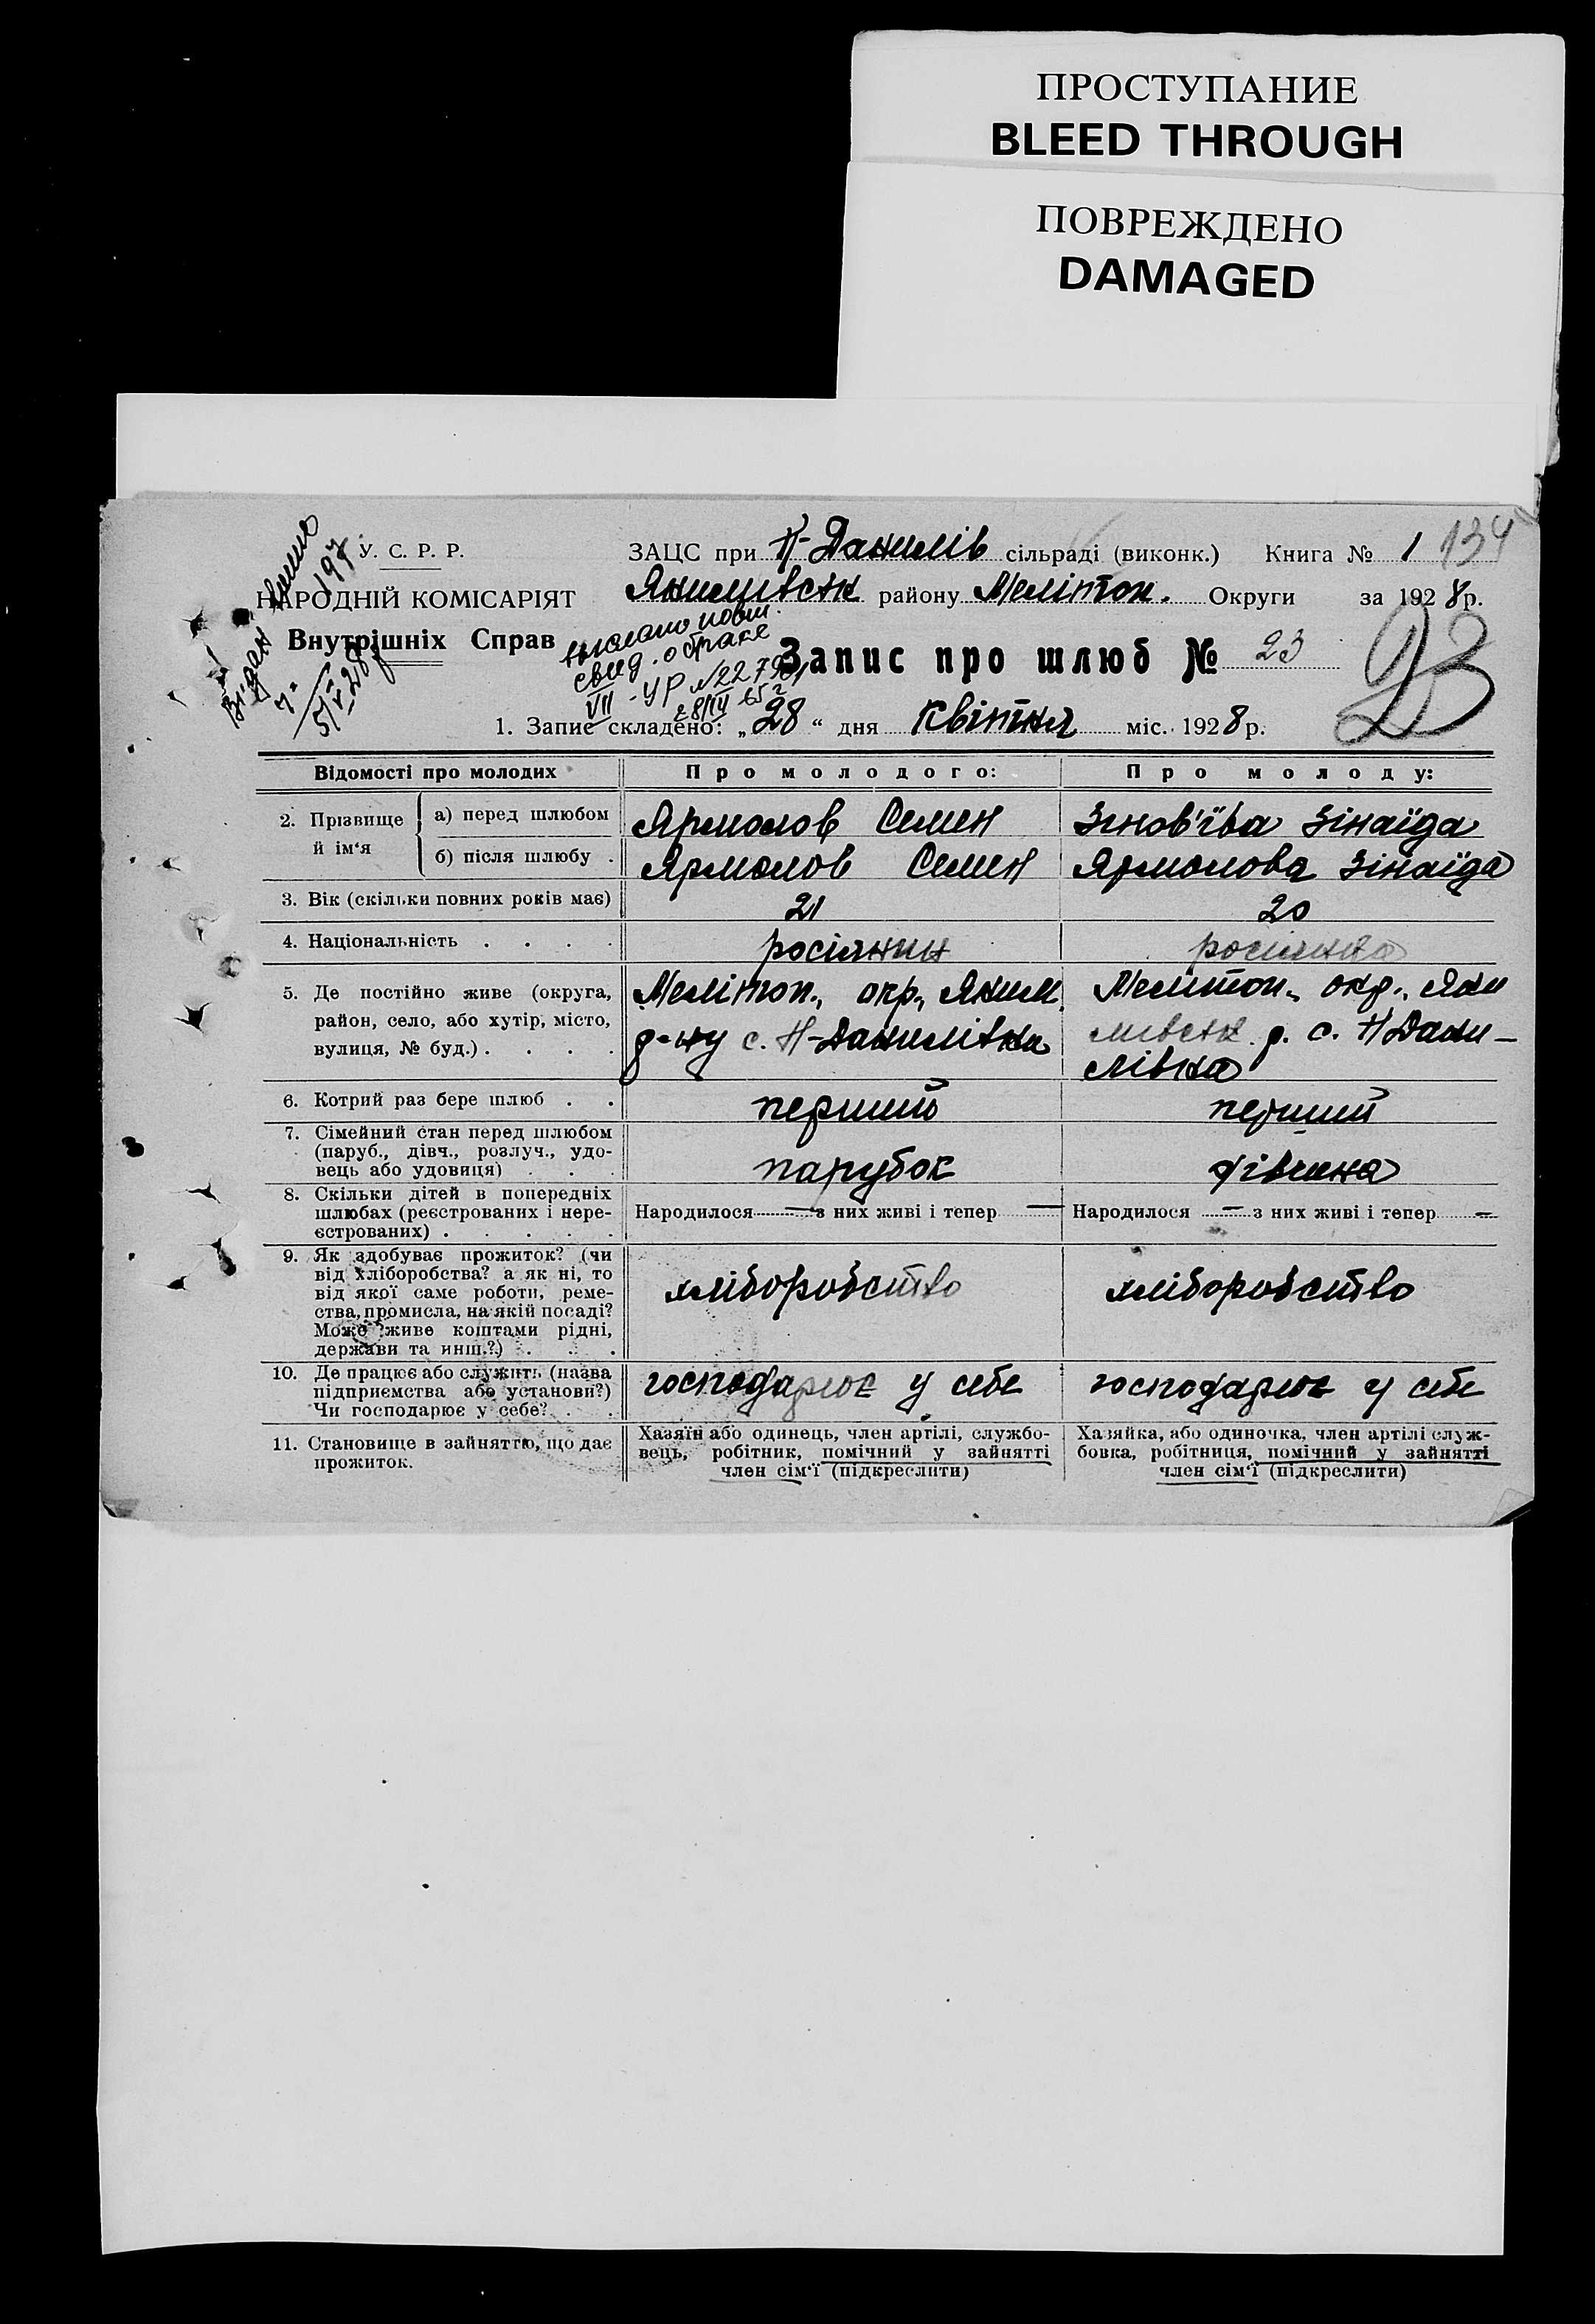 ПРОСТУПАНИЕ
BLEED THROUGH
ПОВРЕЖДЕНО
DAMAGED
У. С. Р. Р.
НАРОДНІЙ КОМІСАРІЯТ
Внутрішніх Справ
ЗАЦС при Н-Данилів сільраді (виконк.) Книга № 1 134
Якимівськ району Мелітоп. Округи за 1928р.
Видан
197
5/V 28р
свид. о браке
VII - УР № 22
Запис про шлюб № 23
23
1. Запис складено: „28“ дня квітня міс. 1928р.
Відомості про молодих Про молодого: Про молоду:
2. Прізвище й ім‘я
а) перед шлюбом Ярмолов Семен Зінов'їва Зінаїда
б) після шлюбу . Ярмолов Семен Ярмолова Зінаїда
3. Вік (скільки повних років має) 21 20
4. Національність . . . . росіянин росіянка
5. Де постійно живе (округа, район, село, або хутір, місто, вулиця, № буд.) . . . .
Мелітоп., окр., Яким.
р-ну с. Н-Данилівка
Мелітоп., окр., Яки
мівськ. р. с. Н Дани-
лівка
6. Котрий раз бере шлюб . . перший перший
7. Сімейний стан перед шлюбом
(паруб., дівч., розлуч., удо-
вець або удовиця) . . . парубок дівчина
8. Скільки дітей в попередніх
шлюбах (реєстрованих і нере-
єстрованих) . . . . .
Народилося — з них живі і тепер —
Народилося — з них живі і тепер —
9. Як здобуває прожиток? (чи
від хліборобства? а як ні, то
від якої саме роботи, реме-
ства, промисла, на якій посаді?
Може живе коштами рідні,
держави та инш.?) . . .
хліборобство хліборобство
10. Де працює або служить (назва
підприємства або установи?)
Чи господарює у себе? . .
господарює у себе господарює у себе
11. Становище в зайняттю, що дає
прожиток.
Хазяїн або одинець, член артілі, службо-
вець, робітник, помічний у зайнятті
член сім‘ї (підкреслити)
Хазяйка, або одиночка, член артілі служ-
бовка, робітниця, помічний у зайнятті
член сім‘ї (підкреслити)